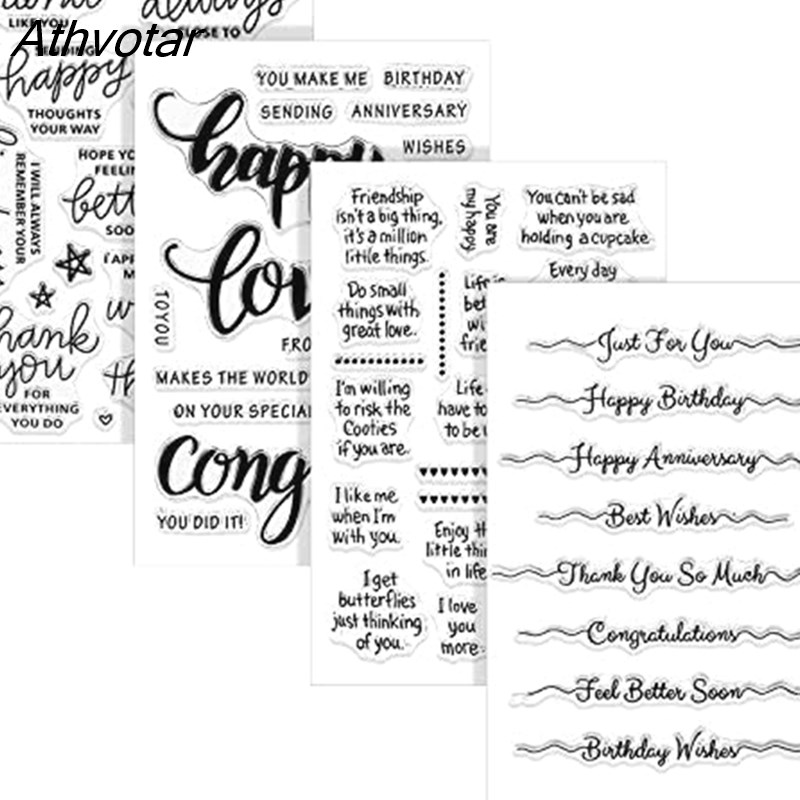 LIKE YOU
CLOSE TO
Athvotar
SENDING
happy
THOUGHTS
YOUR WAY
I WILL ALWAYS
REMEMBER YOUR
HOPE YO
FEELIN
bett
SOO
hank
you
FOR
EVERYTHING
YOU DO
YOU MAKE ME
BIRTHDAY
SENDING
ANNIVERSARY
WISHES
happy
lov
TO YOU
FRO
MAKES THE WORLD
ON YOUR SPECIAL
Cong
YOU DID IT!
Friendship
isn't a big thing,
it's a million
little things.
You are
my happy
You can't be sad
when you are
holding a cupcake.
Every day
Do small
things with
great love.
Life is
bet
wi
frie
I'm willing
to risk the
Cooties
if you are.
Life
have to
to be
I like me
when I'm
with you.
Enjoy th
little thin
in life
I get
butterflies
just thinking
of you.
I love
you
more
Just For You
Happy Birthday
Happy Anniversary
Best Wishes
Thank You So Much
Congratulations
Feel Better Soon
Birthday Wishes